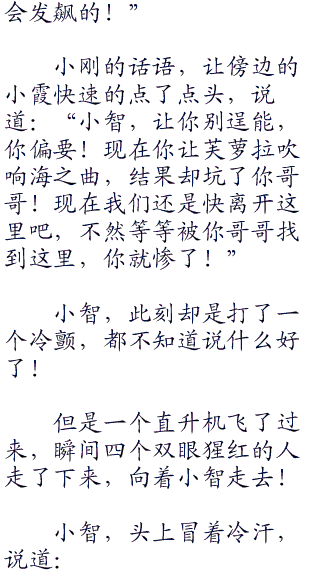 会发飙的！”
小刚的话语，让傍边的
小霞快速的点了点头，说
道：“小智，让你别逞能，
你偏要！现在你让芙萝拉吹
响海之曲，结果却坑了你哥
哥！现在我们还是快离开这
里吧，不然等等被你哥哥找
到这里，你就惨了！”
小智，此刻却是打了一
个冷颤，都不知道说什么好
了！
但是一个直升机飞了过
来，瞬间四个双眼猩红的人
走了下来，向着小智走去！
小智，头上冒着冷汗，
说道：